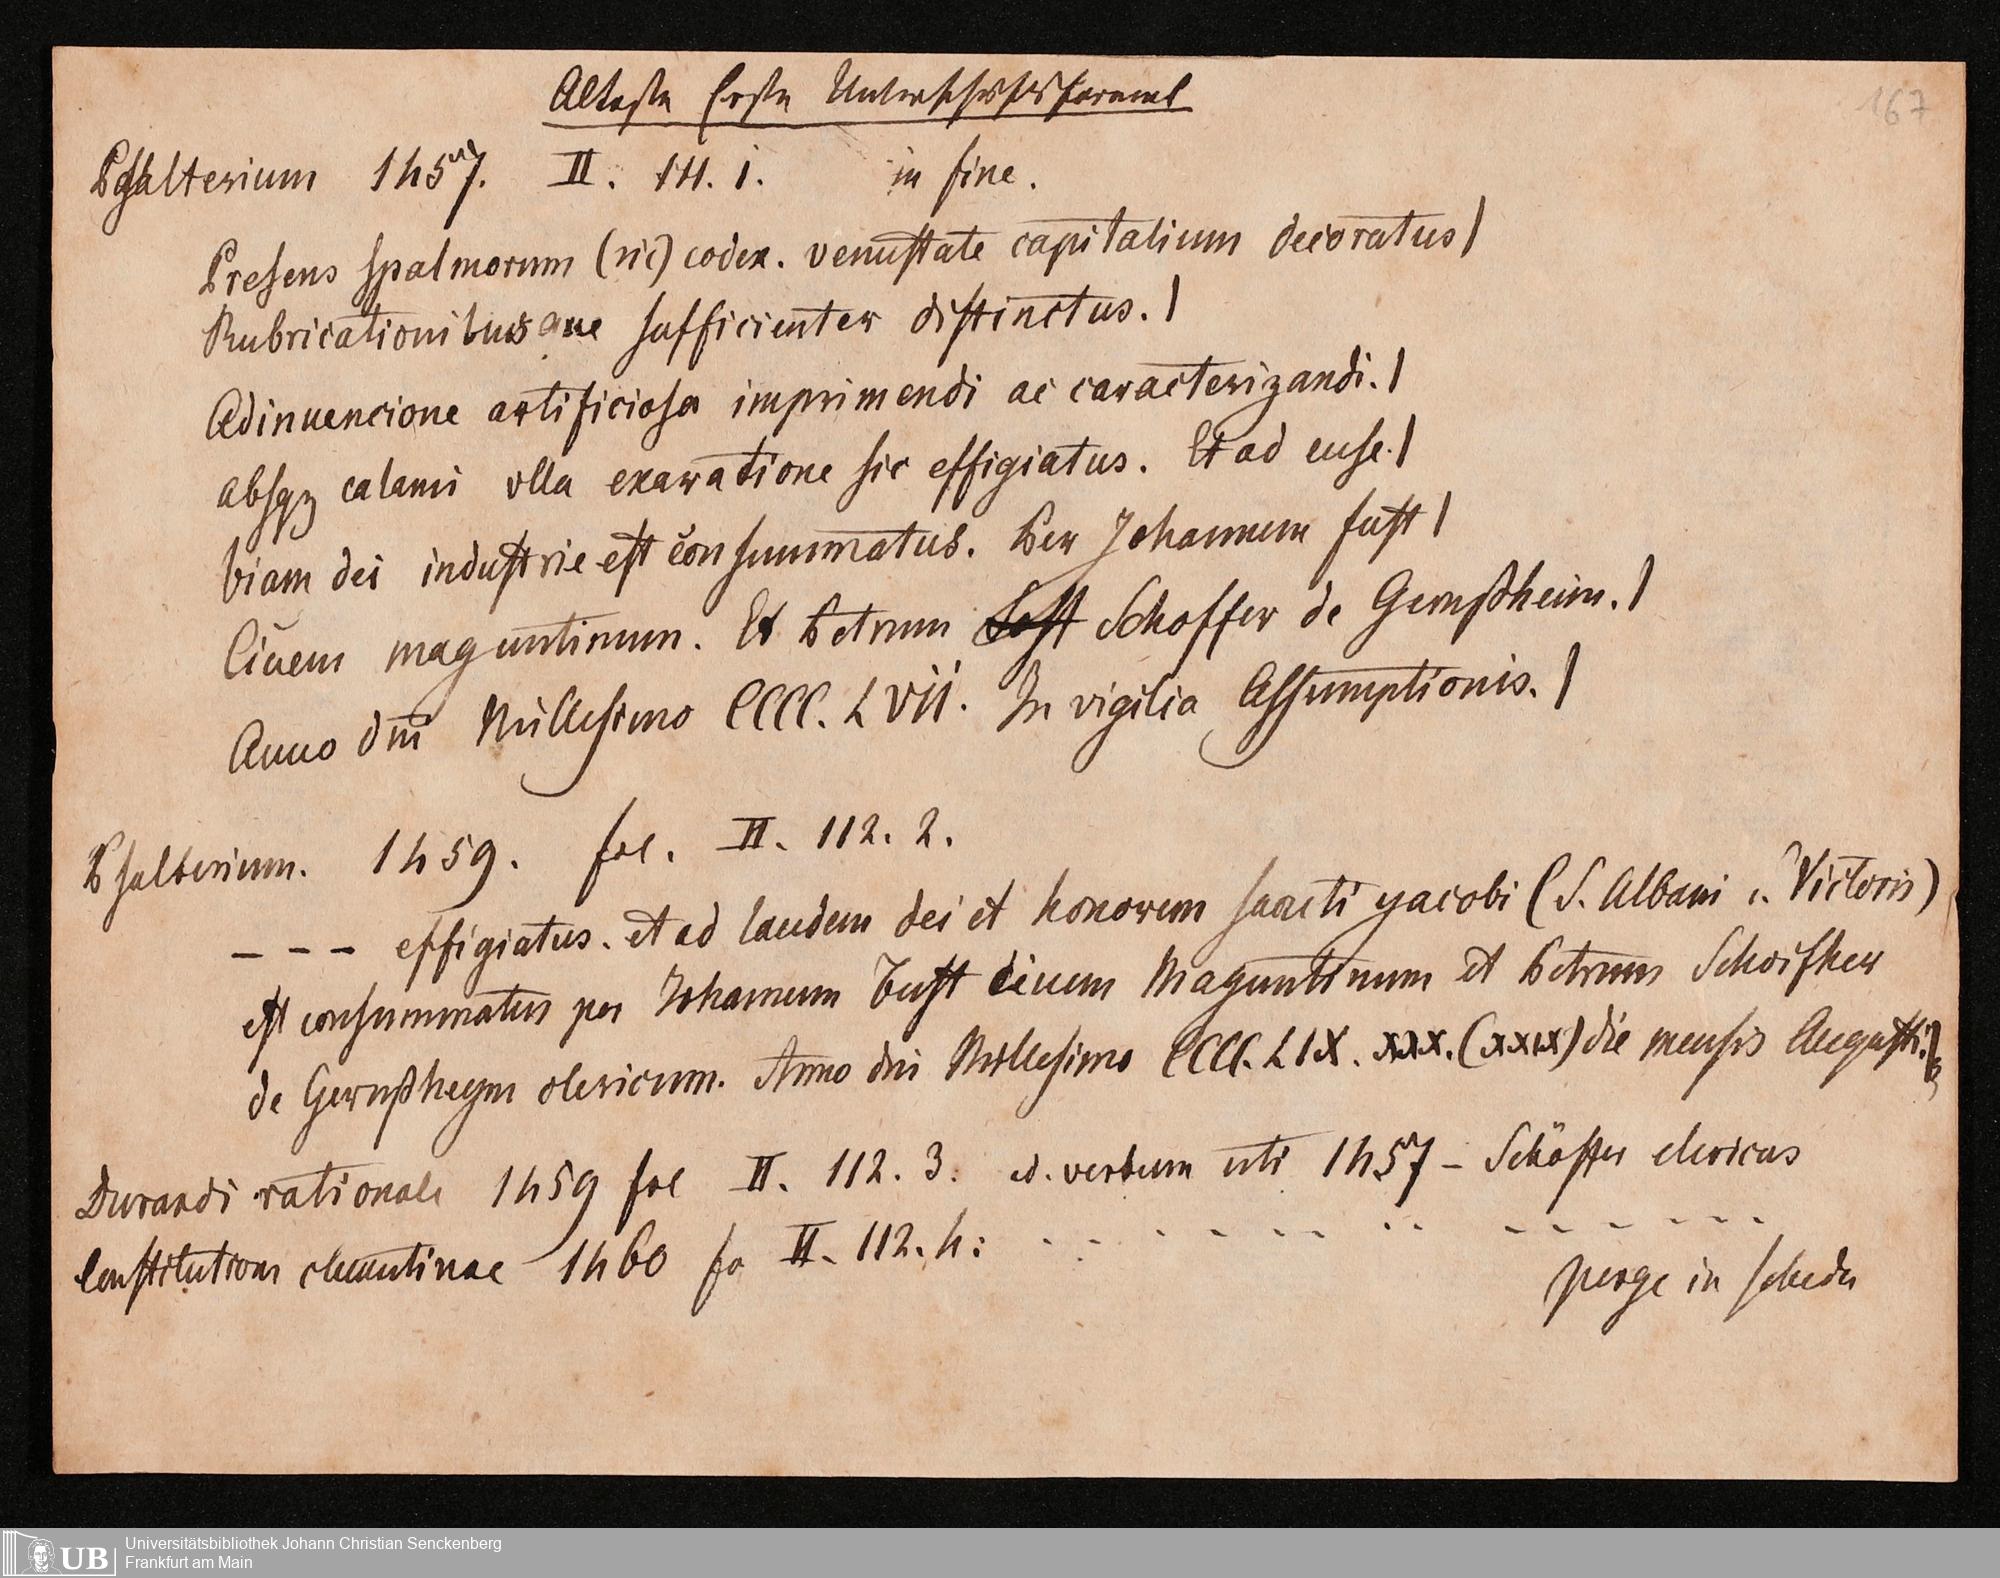 Älteste Erste Unterschriftsformel
167
Psalterium 1457. II. 111. 1. in fine.
Presens spalmorum (sic) codex. venustate capitalium decoratus |
Rubricationibusque sufficienter distinctus. |
Adinuencione artificiosa imprimendi ac caracterizandi. |
absqz calami vlla exaracione sic effigiatus. Et ad euse. |
biam dei industrie est consummatus. Per Johannem fust |
Ciuem maguntinum. Et Petrum Schoffer de Gernßheim. |
Anno dni Millesimo CCCC. L VII. In vigilia Assumptionis. |
Psalterium. 1459. fol. II. 112. 2.
- - - effigiatus. et ad laudem dei et honorem sancti jacobi (S. Albani u. Victoris)
est consummatus per Johannem Fust civem Maguntinum et Petrum Schoifher
de Gernßheym clericum. Anno dni Millesimo CCCC. LIX. xxx. (xxix) die mensis Augusti.
Durandi rationale 1459 fol II. 112. 3. ad. verbum uti 1457 - Schöffer clericus
Constitutiones clementinae 1460 fo II. 112. 4: - - - - - - - - - - - - - - -
perge in scheda
UB Universitätsbibliothek Johann Christian Senckenberg
Frankfurt am Main